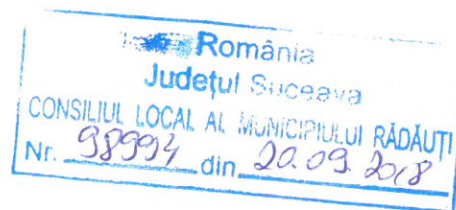 România
Județul Suceava
CONSILIUL LOCAL AL MUNICIPIULUI RĂDĂUȚI
Nr. 98994 din 20.09.2018